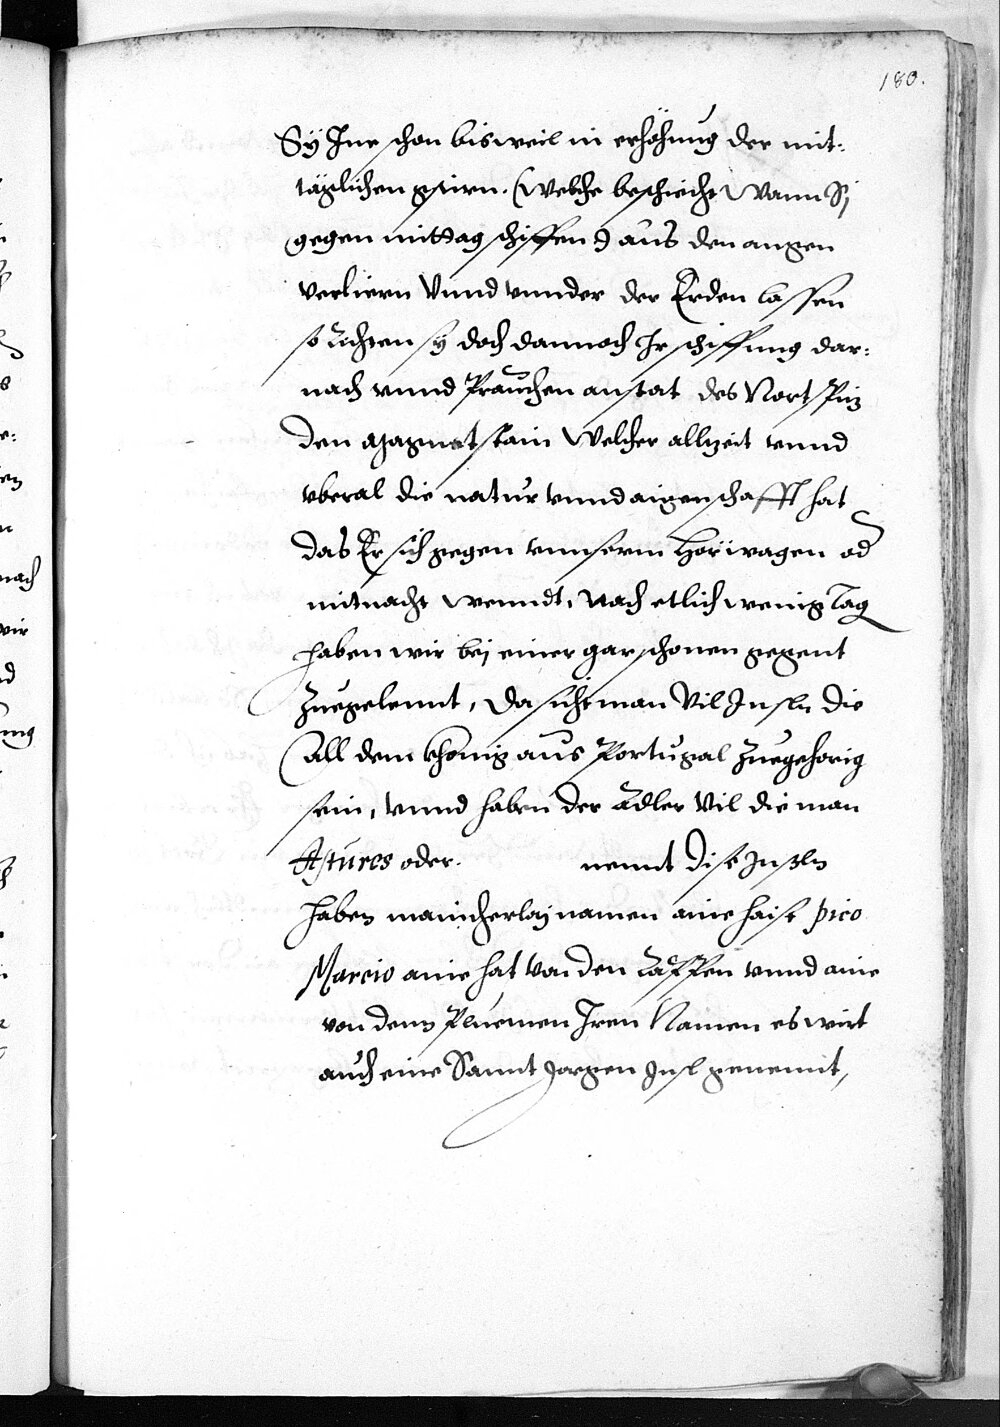 180.
Sÿ Inr schon bisweil in erhöhung der mit-
täglichen gstirn. (welche beschicht Wann Sj
gegen mittag schiffen) aus den augen
verliern Vnnd vnnder der Erden lassen
so richten sÿ doch dannoch Ir schiffung dar-
nach vnnd Prauchen anstat des Nort Püz
den Magnetstain Welcher allzeit vnnd
vberal die natur vnnd aigenschafft hat
das Er sich gegen vnnserm Hörwagen od
mitnacht wenndt, Nach etlich wenig Tag
haben wir bej einer gar schonen gegent
Zuegelennt, Da sicht man Vil Insln die
all dem khönig aus Portugal Zuegehorig
sein, vnnd haben der Adler Vil die man
Astures oder. nennt Dise Insln
haben maincherlaj namen aine haist pico
Marcio aine hat von den Läffen vnnd aine
von denn Pluemen Iren Namen es wirt
auch eine Sannt Jorgen Insl genennt,